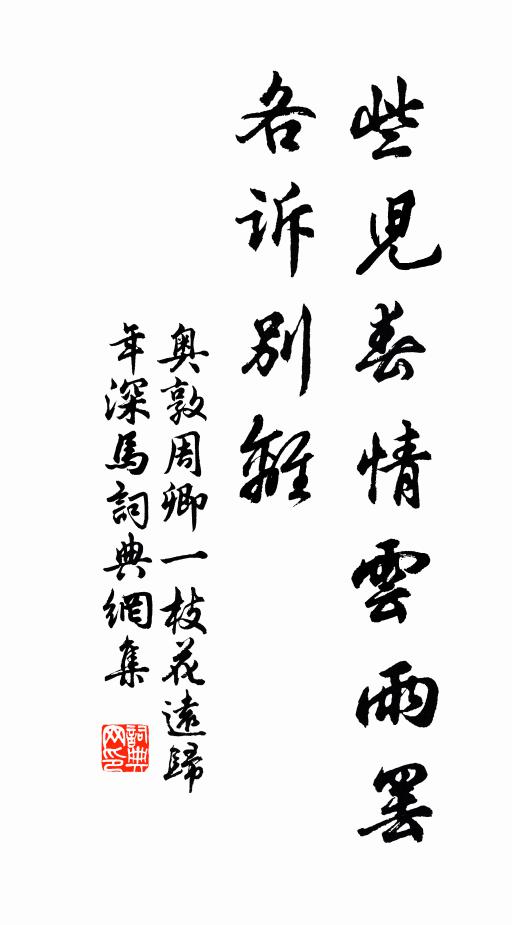 些兒春情雲雨罢
各诉別離
奥敦周卿一枝花遠歸
年深馬詞典網集
詞典网印